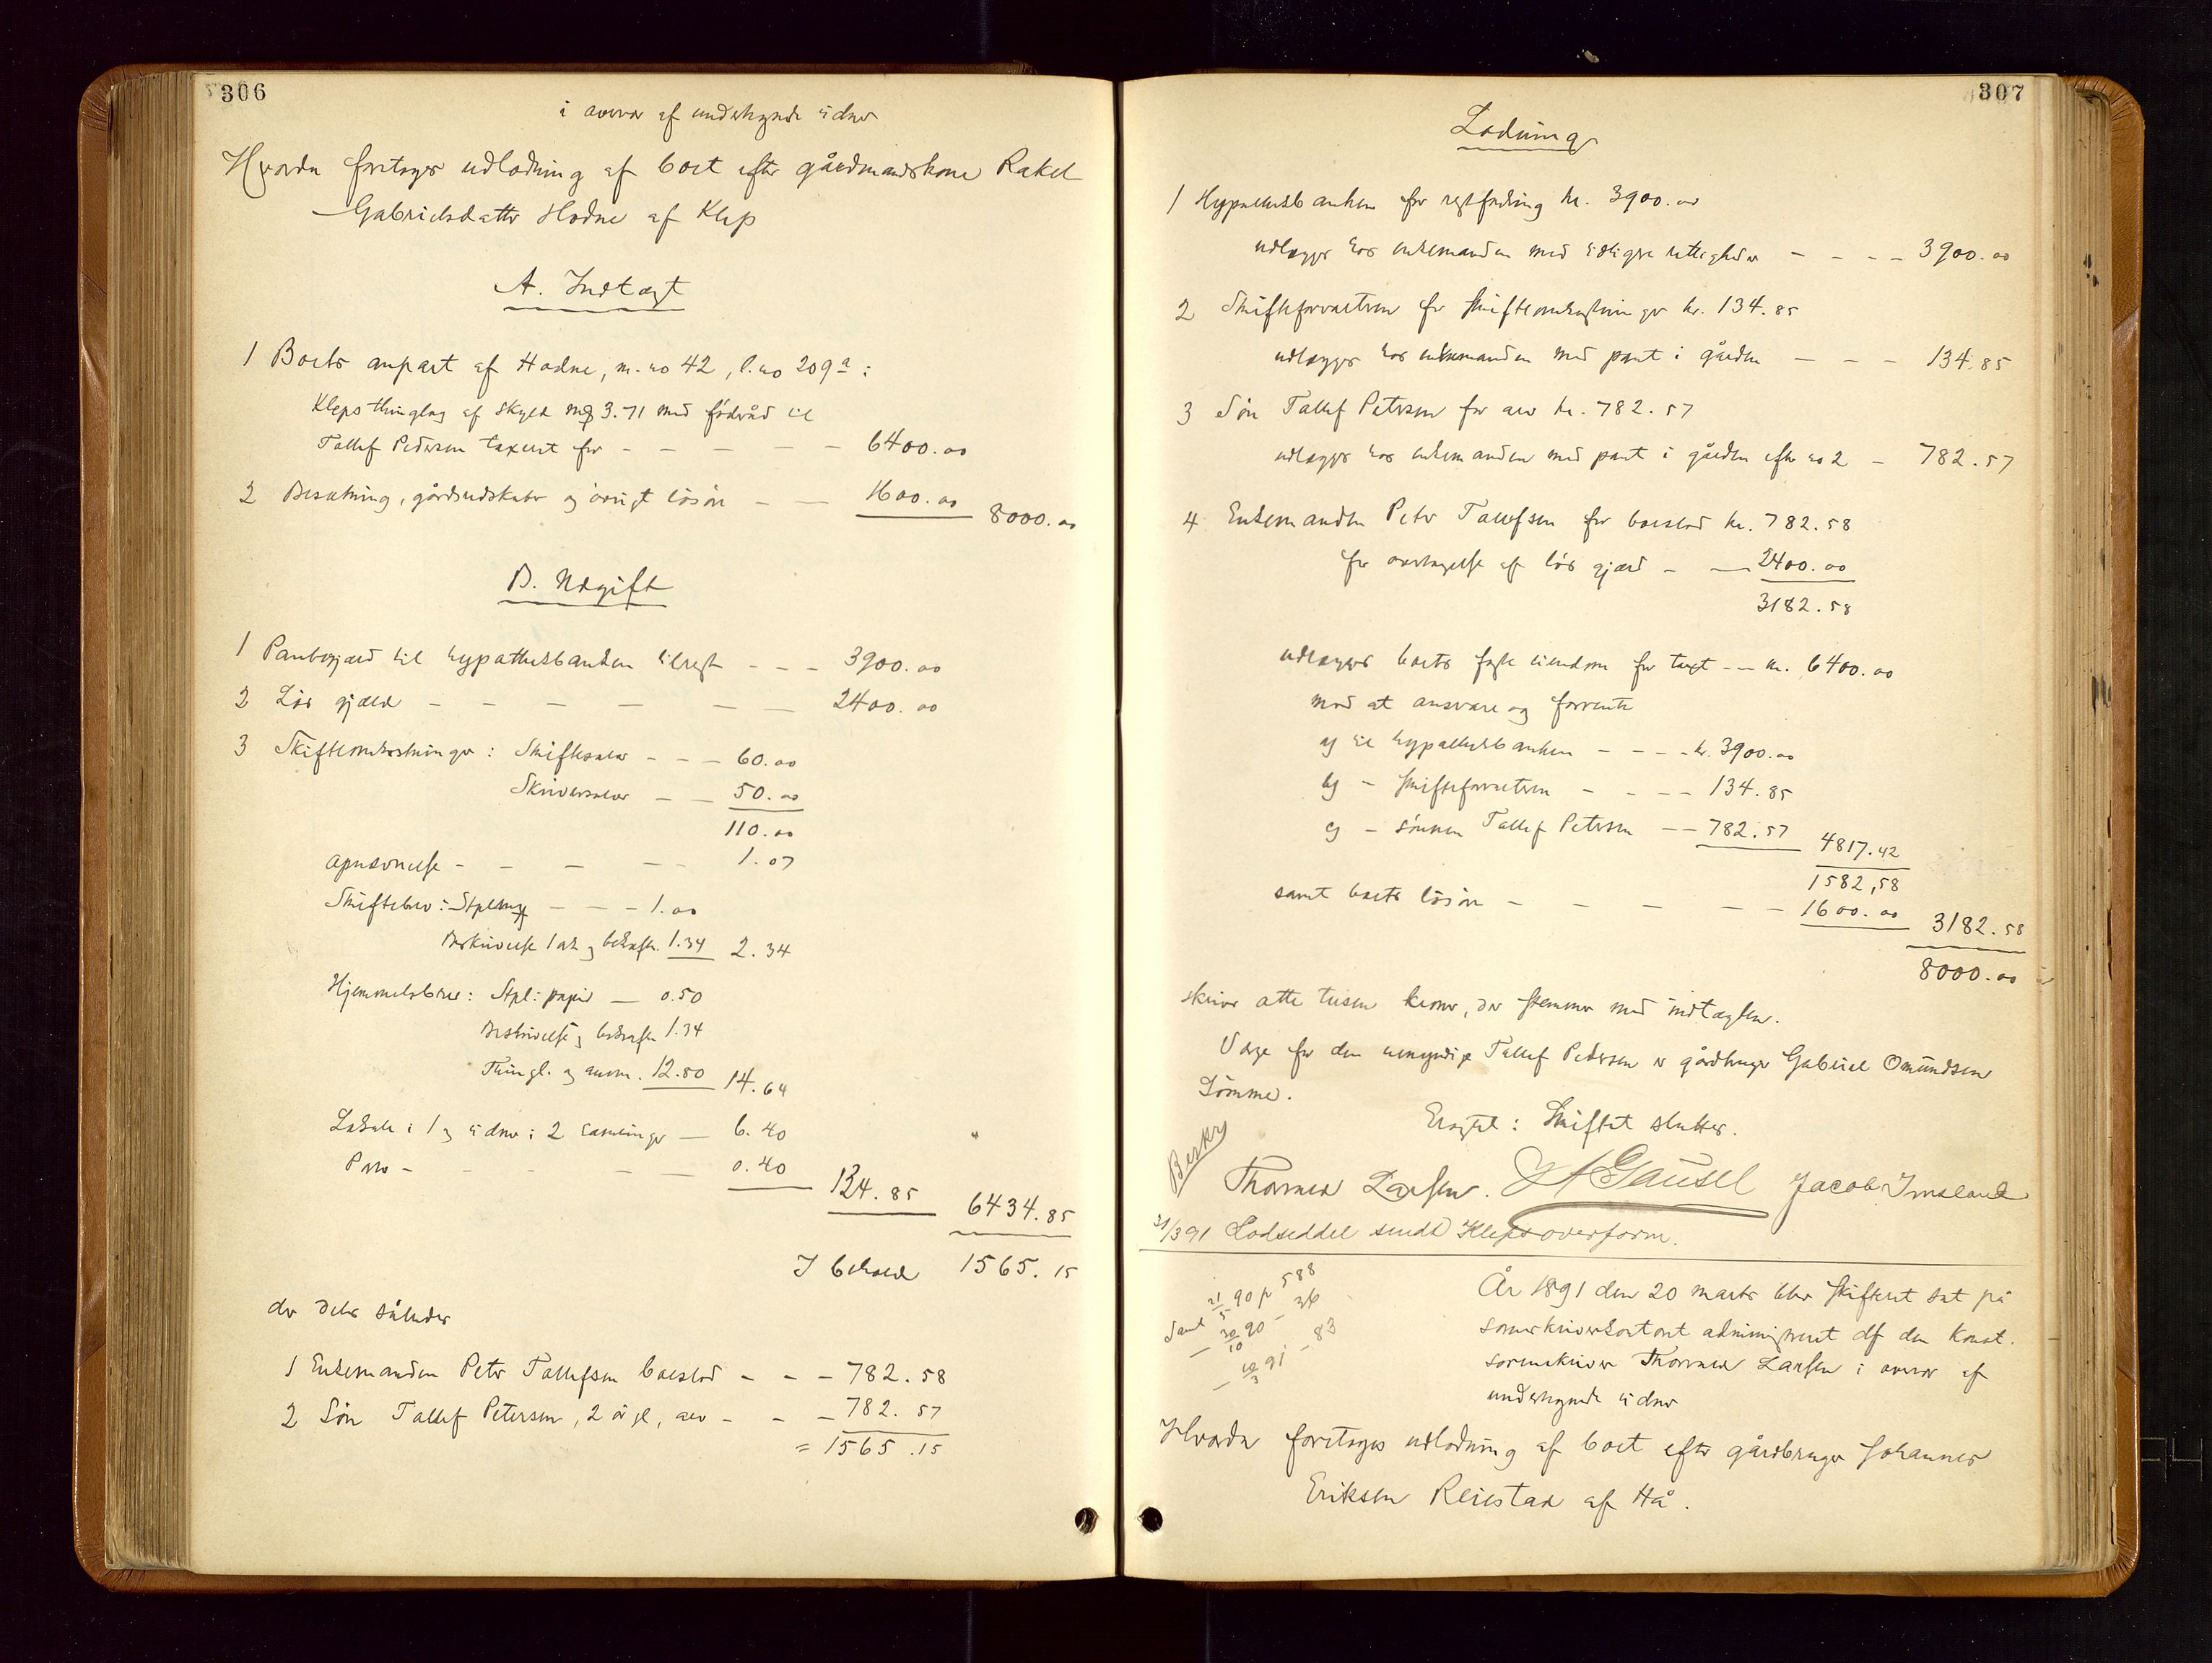 306
i overvær af undertegnede vidner
Hvorda foretoges udlodning af boet efter gårdmandskone Rakel
Gabrielsdatter Hodne af Klep
A. Indtægt
1 Boets anpart af Hodne, m.no 42, l.no 209a:
Kleps thinglag af skyld mk 3.71 med föderåd til
Tallef Pedersen taxeret for - - - - - 6400.00
2 Besætning, gårdsredskaber og övrigt lösöre - - 1600.00 8000.00
B. Udgift
1 Pantegjæld til hypothekbanken tilrest - - - 3900.00
2 Lös gjæld - - - - - - 2400.00
3 Skifteomkostninger: Skiftesalær - - - 60.00
Skriversalær - - 50.00
110.00
- - - - 1.07
Skiftebrev: Stplmrk - - - 1.00
Beskrivelse 1 ark og bekræft. 1.34 2.34
Hjemmelsbrev: Stpl: papir - 0.50
Beskrivelse og bekræft. 1.34
Thingl. og anm. 12.80 14.64
Lokale i 1 og vidner i 2 samlinger - 6.40
Porto - - - - - 0.40
134.85 6434.85
I behold 1565.15
der deles således
1 Enkemanden Peter Tallefsen boeslod - - - 782.58
2 Sön Tallef Petersen, 2 år gl, arv - - - 782.57
= 1565.15
307
Lodning
1 Hypothekbanken for restfordring kr. 3900.00
udlægges hos enkemanden med tidligere rettigheder - - - - 3900.00
2 Skifteforvalteren for skifteomkostninger kr. 134.85
udlægges hos enkemanden med pant i gården - - - 134.85
3 Sön Tallef Petersen for arv kr. 782.57
udlægges hos enkemanden med pant i gården efter no 2 - 782.57
4 Enkemanden Peter Tallefsen for boeslod kr. 782.58
for overtagelse af lös gjæld - - 2400.00
3182.58
udlægges boets faste eiendom for taxt - - kr. 6400.00
mod at ansvare og forrente
a) til hypothekbanken - - - - kr. 3900.00
b) - skifteforvalteren - - - - 134.85
c) - sönnen Tallef Petersen - - 782.57 4817.42
1582,58
samt boets lösöre - - - - - 1600.00 3182.58
8000.00
skriver otte tusen kroner, der stemmer med indtægten.
Værge for den umyndige Tallef Pedersen er gårdbruger Gabriel Omundsen
Sömme.
Eragtet: Skiftet sluttes.
Beskr
Thormod Larsen. Gausel Jacob Imsland
21/3 91 Lodseddel sendt Kleps overform.
21/5 90 p 588
Saml 30/10 90 - 36
- 10/3 91 - 83
År 1891 den 20 marts blev skifteret sat på
sorenskriverkontoret administreret af den konst.
sorenskriver Thormod Larsen i overvær af
undertegnede vidner
Hvorda foretoges udlodning af boet efter gårdbruger Johannes
Eriksen Reiestad af Hå.